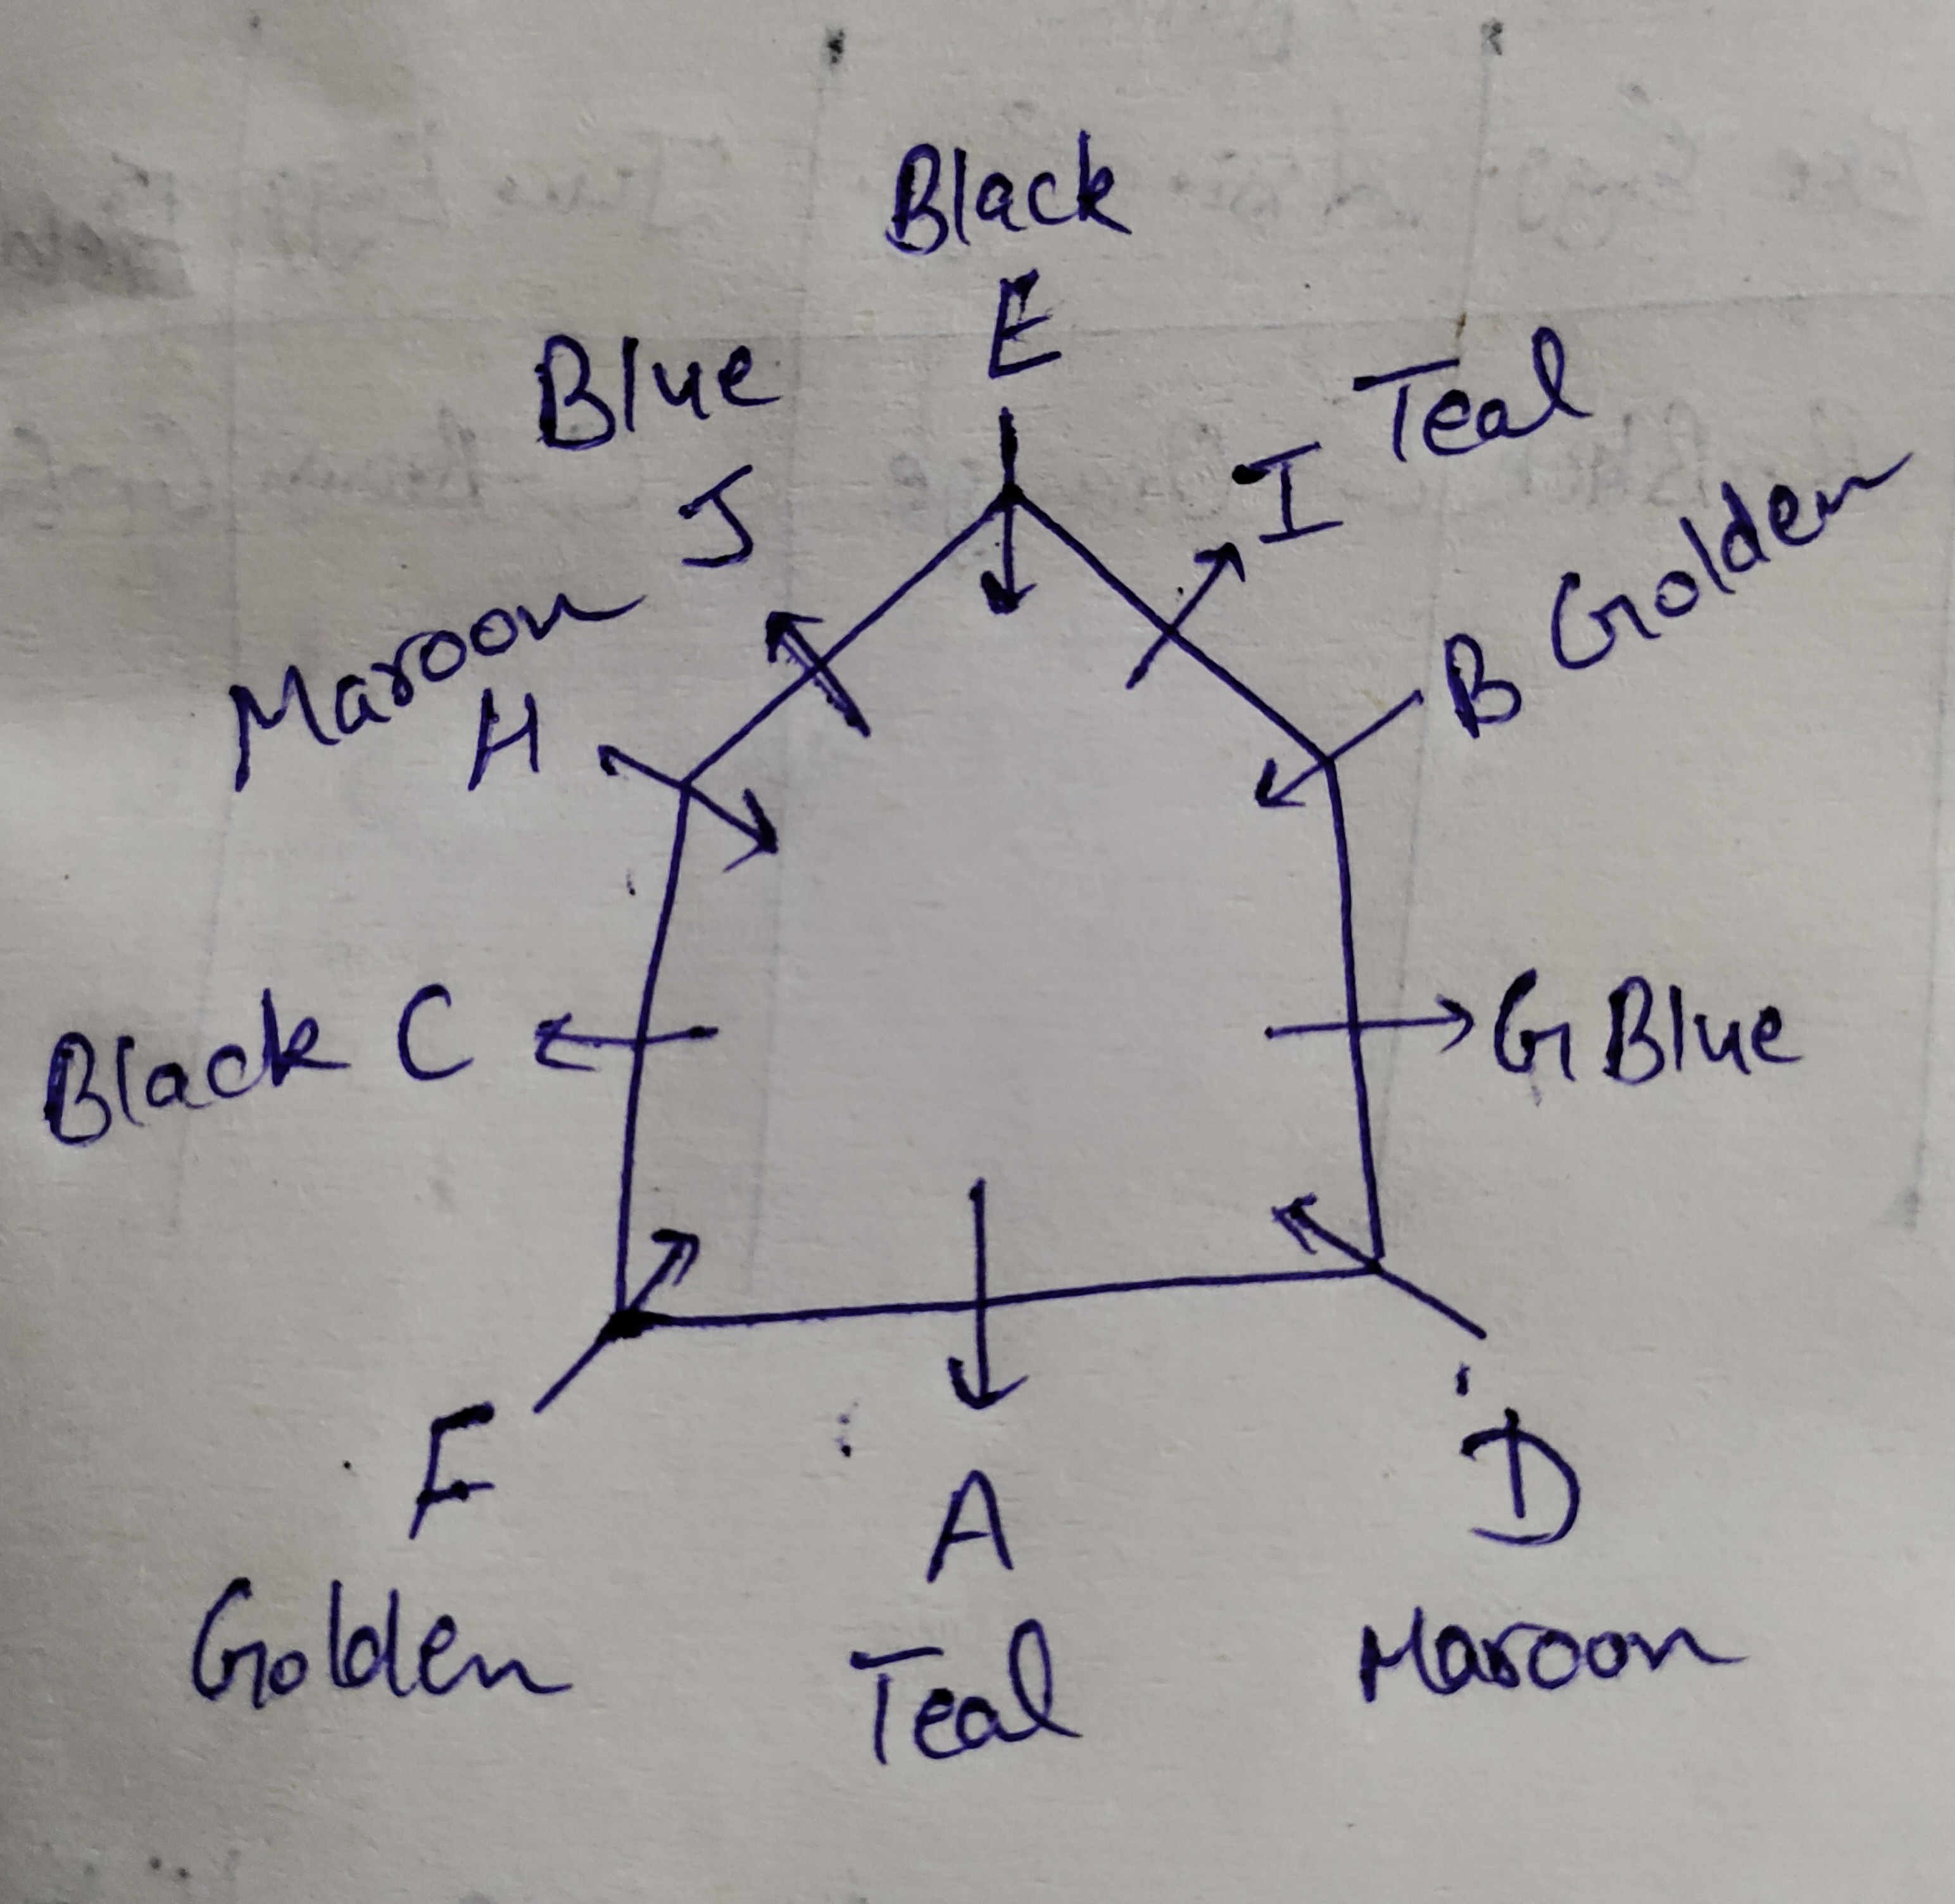 Black
E
Blue
Teal
I
J
Golden
B
Maroon
H
Black C
G Blue
F
A
D
Golden
Teal
Maroon